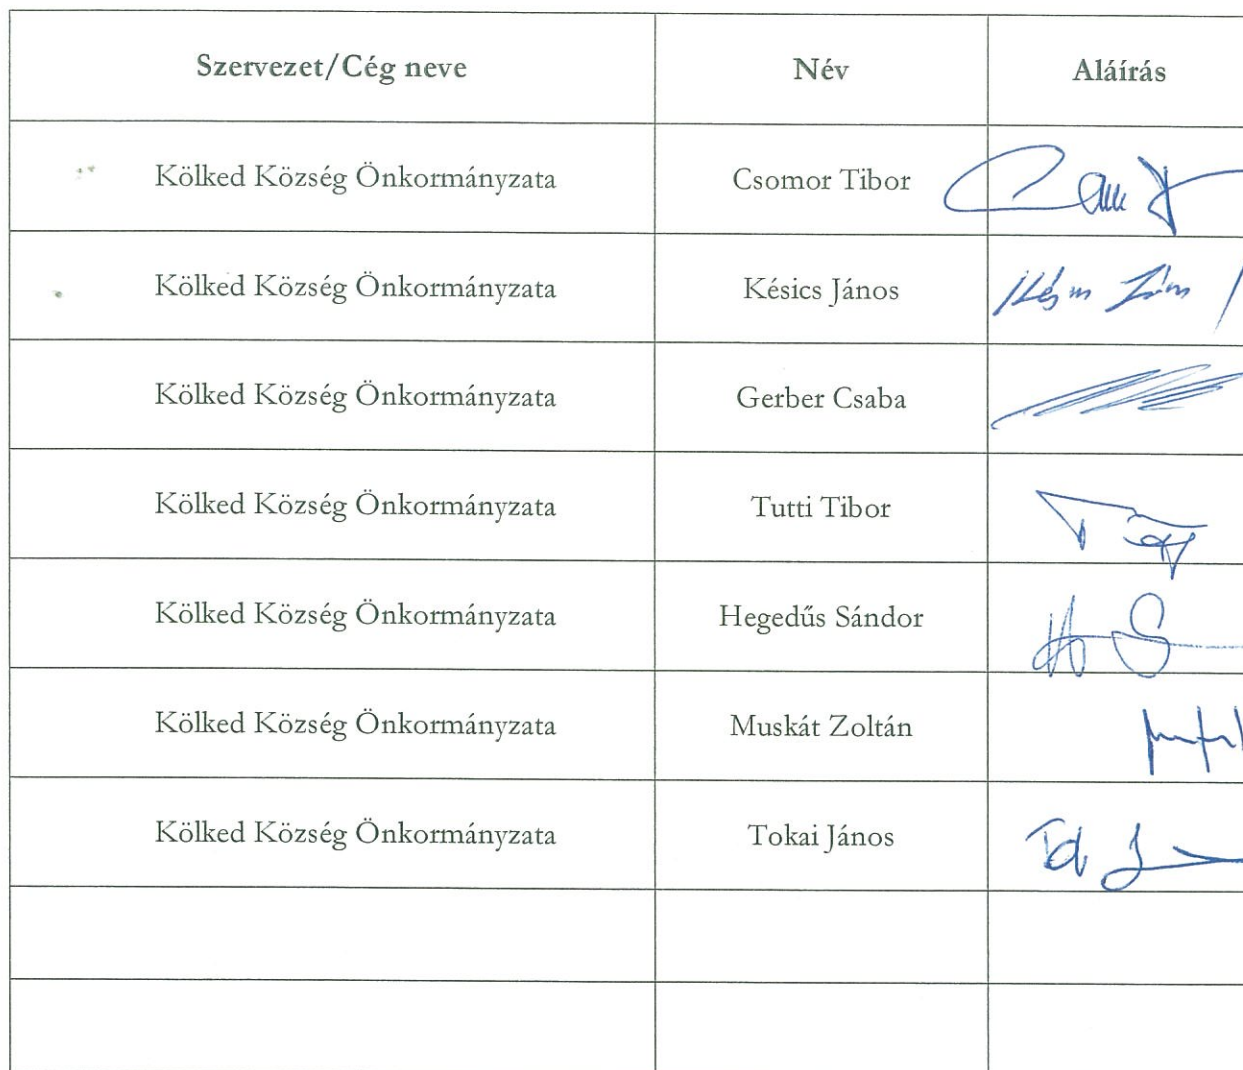 Szervezet/Cég neve Név Aláírás
Kölked Község Önkormányzata Csomor Tibor
Kölked Község Önkormányzata Késics János
Kölked Község Önkormányzata Gerber Csaba
Kölked Község Önkormányzata Tutti Tibor
Kölked Község Önkormányzata Hegedűs Sándor
Kölked Község Önkormányzata Muskát Zoltán
Kölked Község Önkormányzata Tokai János